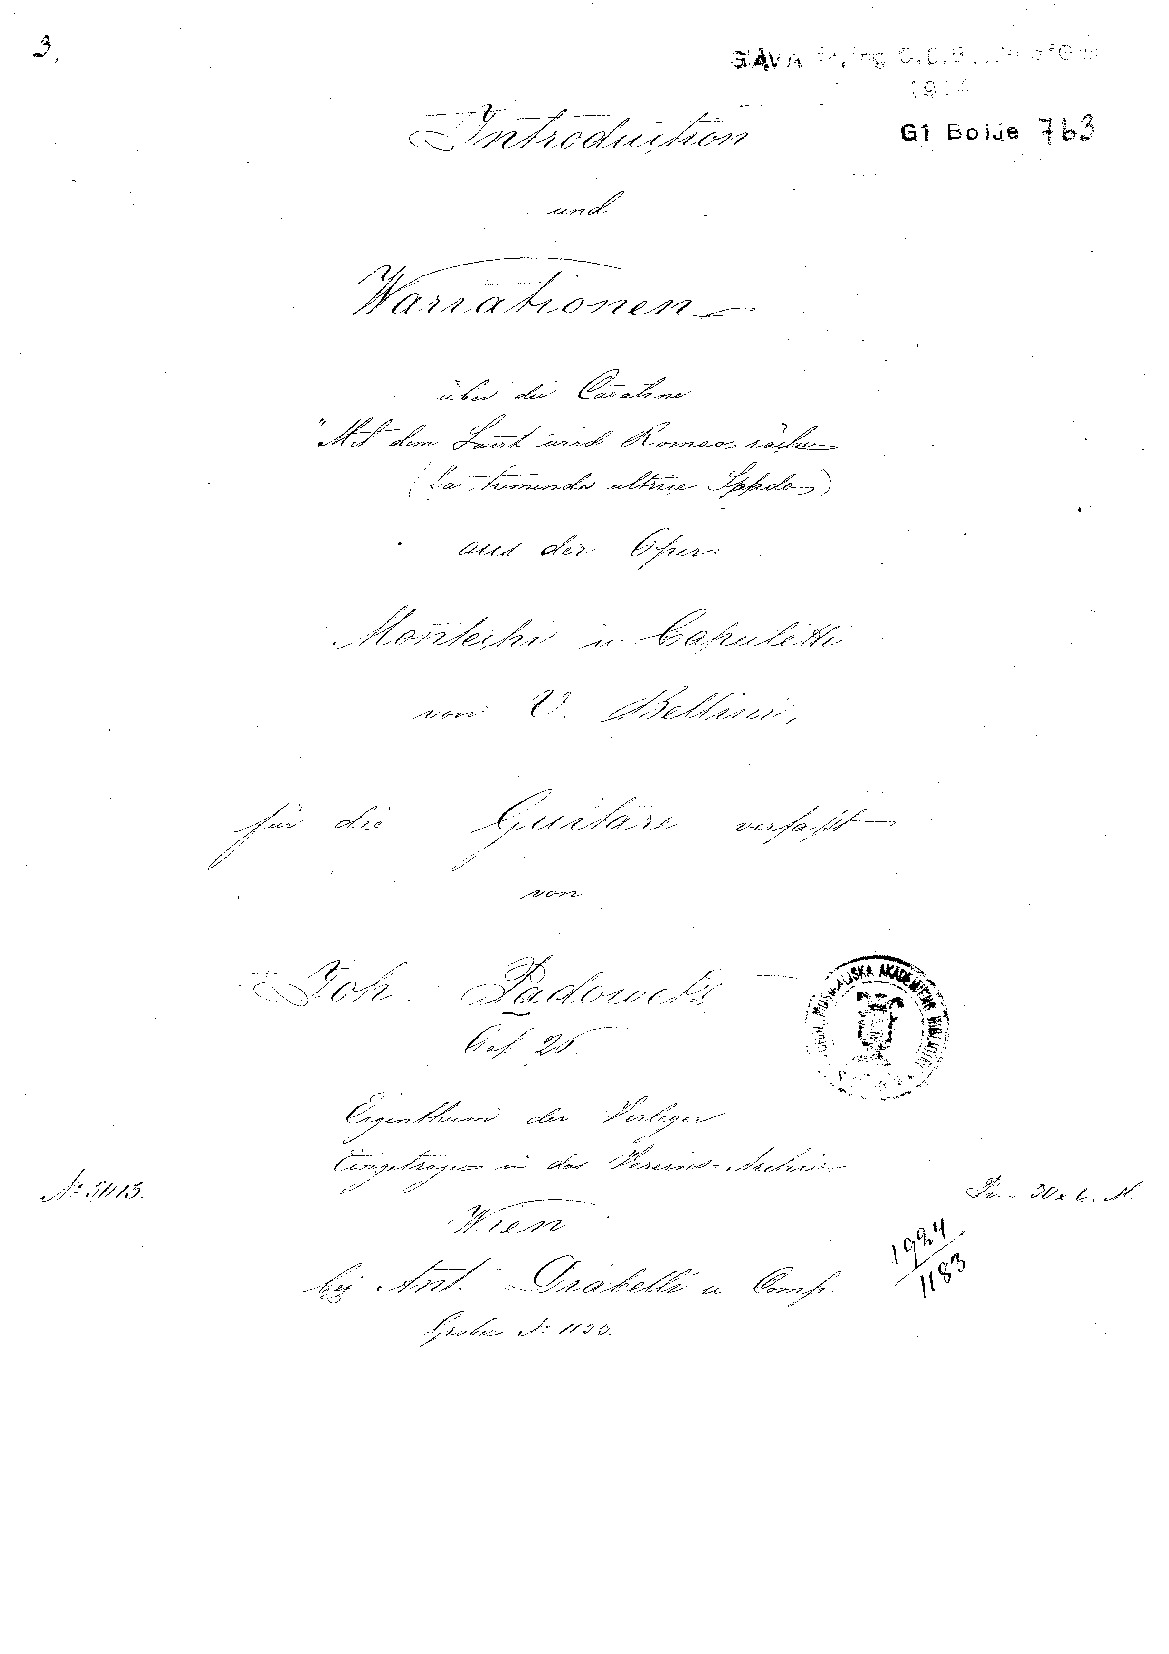 3,
GÅVA
1924
Introduction
G1 Boije 763
und
Wariationen
über die Cavatine
"Mit dem Laut wird Romeo rächen
(La tremenda ultrice Sppda)
aus der Oper
Montechi u Capuletti
von V. Bellini,
für die Guitare verfasst
von
Joh. Padowetz
Oef. 25.
KUNGL. MUSIKALISKA AKADEMIENS BIBLIOTEK
Eigenthum der Verleger
Eingetragen in das Vereins-Archiv
No 5413.
Pr. 30 x C. M.
Wien
1924
1183
bey Ant. Diabelli u Comp.
Graben No 1133.